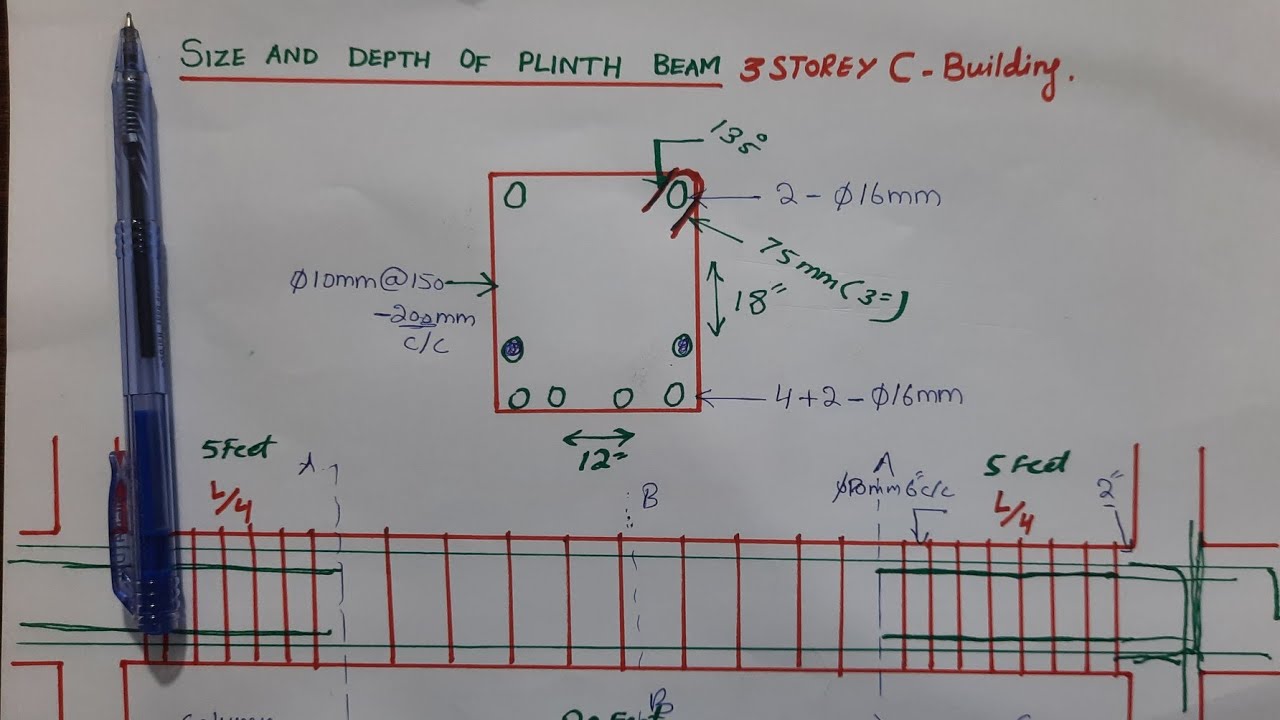 SIZE AND DEPTH OF PLINTH BEAM 3 STOREY C - Building.
135°
2 - Ø16mm
75mm (3=)
Ø10mm@150
-200mm
c/c
18"
4+2 - Ø16mm
12"
5 Feet
L/4
A
B
A
6" c/c
5 Feet
L/4
2"
B